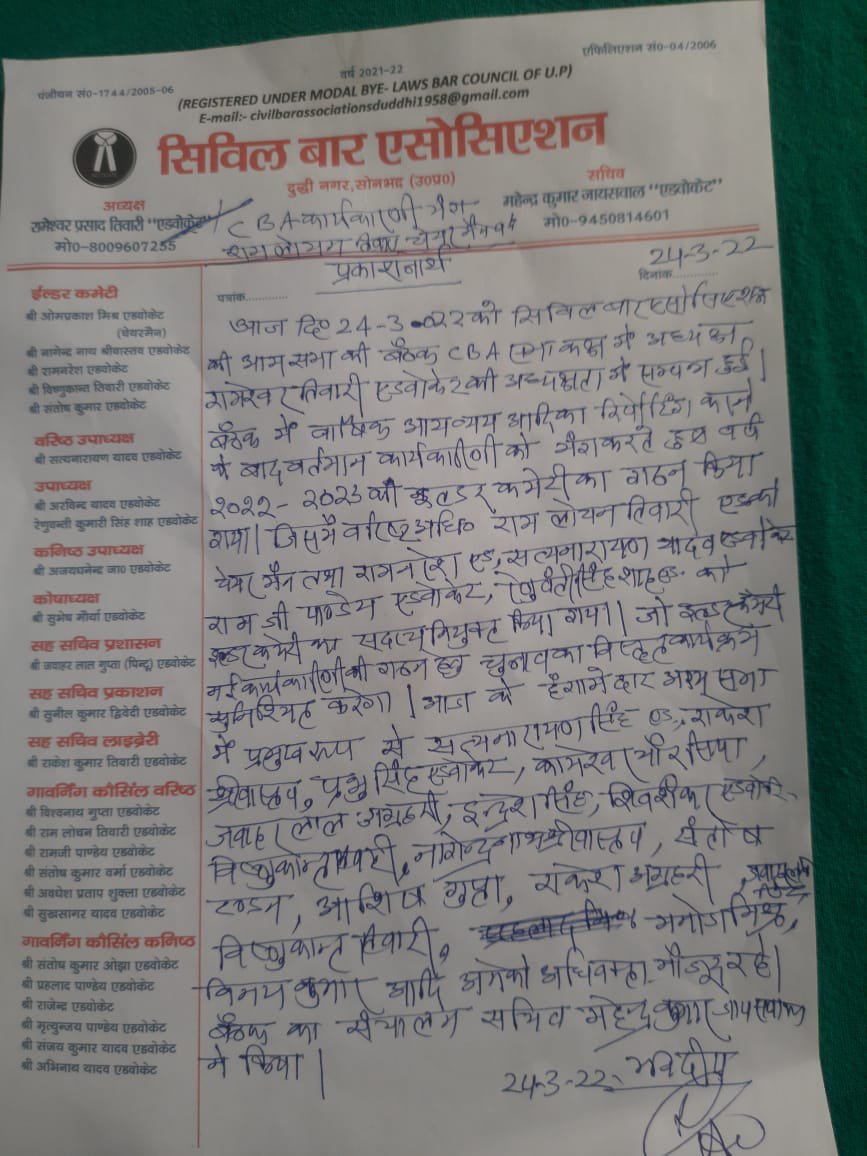 एफिलिएशन सं0-04/2006
वर्ष 2021-22
पंजीयन सं0-1744/2005-06
(REGISTERED UNDER MODAL BYE- LAWS BAR COUNCIL OF U.P)
E-mail:- civilbarassociationsduddhi1958@gmail.com
सिविल बार एसोसिएशन
दुद्धी नगर, सोनभद्र (उ०प्र०)
अध्यक्ष
रामेश्वर प्रसाद तिवारी "एडवोकेट"
मो०-8009607255
सचिव
महेन्द्र कुमार जायसवाल "एडवोकेट"
मो०-9450814601
CBA कार्यकारिणी भंग
राम लोचन तिवारी चेयरमैन बने
प्रकाशनार्थ
24-3-22
पत्रांक............
दिनांक....................
ईल्डर कमेटी
श्री ओमप्रकाश मिश्र एडवोकेट
(चेयरमैन)
श्री नागेन्द्र नाथ श्रीवास्तव एडवोकेट
श्री रामनरेश एडवोकेट
श्री विष्णुकान्त तिवारी एडवोकेट
श्री संतोष कुमार एडवोकेट
वरिष्ठ उपाध्यक्ष
श्री सत्यनारायण यादव एडवोकेट
उपाध्यक्ष
श्री अरविन्द यादव एडवोकेट
रेणुवन्ती कुमारी सिंह शाह एडवोकेट
कनिष्ठ उपाध्यक्ष
श्री अजयघनेन्द्र जा० एडवोकेट
कोषाध्यक्ष
श्री सुमेष मौर्या एडवोकेट
सह सचिव प्रशासन
श्री जवाहर लाल गुप्ता (पिन्टू) एडवोकेट
सह सचिव प्रकाशन
श्री सुनील कुमार द्विवेदी एडवोकेट
सह सचिव लाइब्रेरी
श्री राकेश कुमार तिवारी एडवोकेट
गावर्निंग कौसिंल वरिष्ठ
श्री विश्वनाथ गुप्ता एडवोकेट
श्री राम लोचन तिवारी एडवोकेट
श्री रामजी पाण्डेय एडवोकेट
श्री संतोष कुमार वर्मा एडवोकेट
श्री अवधेश प्रताप शुक्ला एडवोकेट
श्री सुखसागर यादव एडवोकेट
गावर्निंग कौसिंल कनिष्ठ
श्री संतोष कुमार ओझा एडवोकेट
श्री प्रहलाद पाण्डेय एडवोकेट
श्री राजेन्द्र एडवोकेट
श्री मृत्युन्जय पाण्डेय एडवोकेट
श्री संजय कुमार यादव एडवोकेट
श्री अभिनाथ यादव एडवोकेट
आज दि० 24-3-022 को सिविल बार एसोसिएशन
की आम सभा की बैठक CBA (P) कक्ष में अध्यक्ष
रामेश्वर तिवारी एडवोकेट की अध्यक्षता में सम्पन्न हुई।
बैठक में वार्षिक आय व्यय आदि का रिपोर्टिंग करने
के बाद वर्तमान कार्यकारिणी को भंग करते हुए वर्ष
2022-2023 की इल्डर कमेटी का गठन किया
गया। जिसमें वरिष्ठ अधि० राम लोचन तिवारी एडवो
चेयरमैन तथा रामनरेश एड, सत्यनारायण यादव एडवोकेट
राम जी पाण्डेय एडवोकेट, रेणुवंती सिंह शाह एड. को
इल्डर कमेटी का सदस्य नियुक्त किया गया। जो इल्डर कमेटी
नई कार्यकारिणी की गठन हेतु चुनाव का विस्तृत कार्यक्रम
सुनिश्चित करेगा। आज के हंगामेदार आम सभा
में प्रमुख रूप से सत्यनारायण सिंह एड., राकेश
श्रीवास्तव, प्रभु सिंह एडवोकेट, कामेश्वर चौरसिया,
जवाहर लाल अग्रहरी, इन्द्रेश सिंह, शिवशंकर एडवोके.
विष्णुकान्त तिवारी, नागेन्द्रनाथ श्रीवास्तव, संतोष
टण्डन, आशिष गुप्ता, राकेश अग्रहरी,
विष्णुकान्त तिवारी, मनोज मिश्रा,
विनय कुमार आदि अनेको अधिवक्ता मौजूद रहे।
बैठक का संचालन सचिव महेन्द्र कुमार जायसवाल
ने किया।
भवदीय
24-3-22